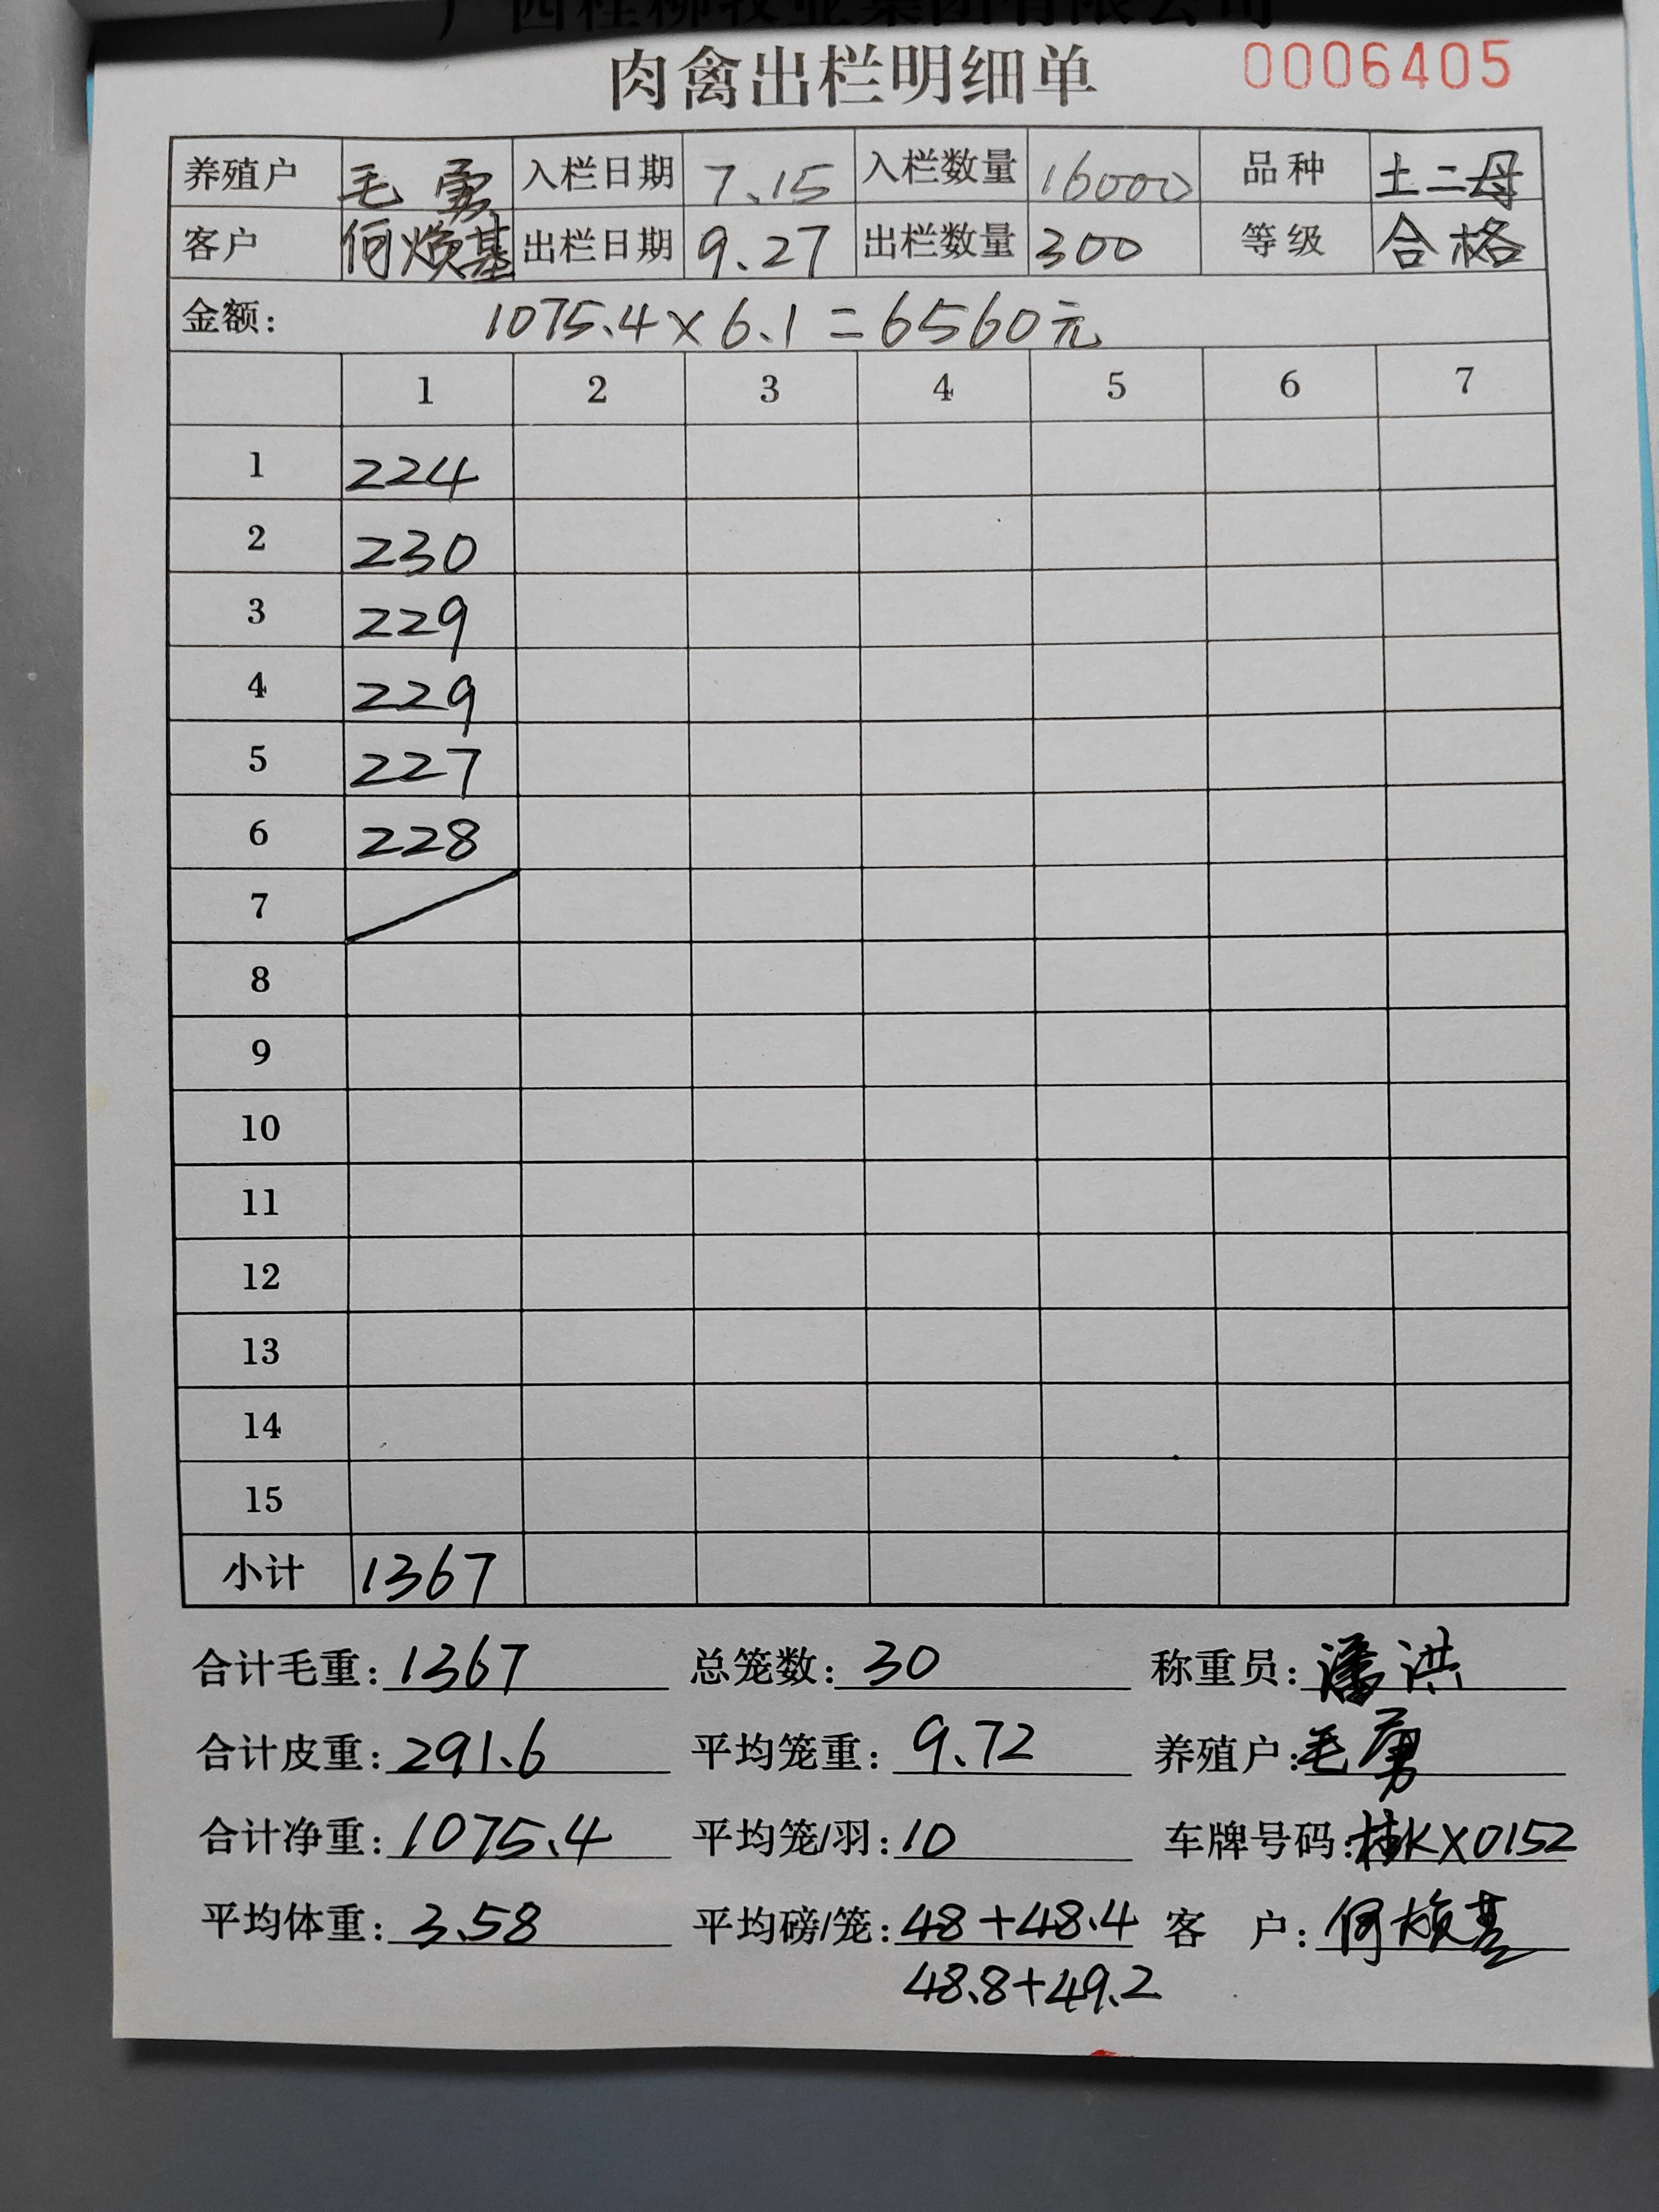 广西桂柳牧业集团有限公司
肉禽出栏明细单 0006405
养殖户 毛勇 入栏日期 7.15 入栏数量 16000 品种 土二母
客户 何焕基 出栏日期 9.27 出栏数量 300 等级 合格
金额: 1075.4×6.1=6560元
1 2 3 4 5 6 7
1 224
2 230
3 229
4 229
5 227
6 228
7
8
9
10
11
12
13
14
15
小计 1367
合计毛重: 1367 总笼数: 30 称重员: 潘洪
合计皮重: 291.6 平均笼重: 9.72 养殖户: 毛勇
合计净重: 1075.4 平均笼/羽: 10 车牌号码: 桂KX0152
平均体重: 3.58 平均磅/笼: 48+48.4 客户: 何焕基
48.8+49.2